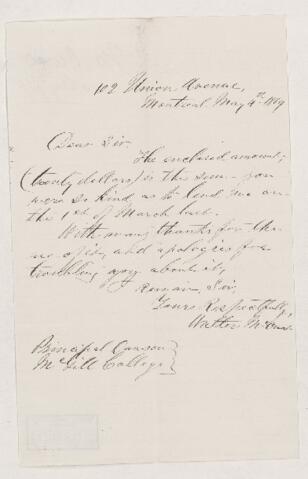 102 Union Avenue,
Montreal May 4th 1869
Dear Sir
The enclosed amount;
(twenty dollars) is the sum you
were so kind as to lend me on
the 1st of March last.
With many thanks for the
and apologies for
troubling you about it,
I remain, Sir,
Yours Respectfully,
Walter
Principal Dawson
McGill College